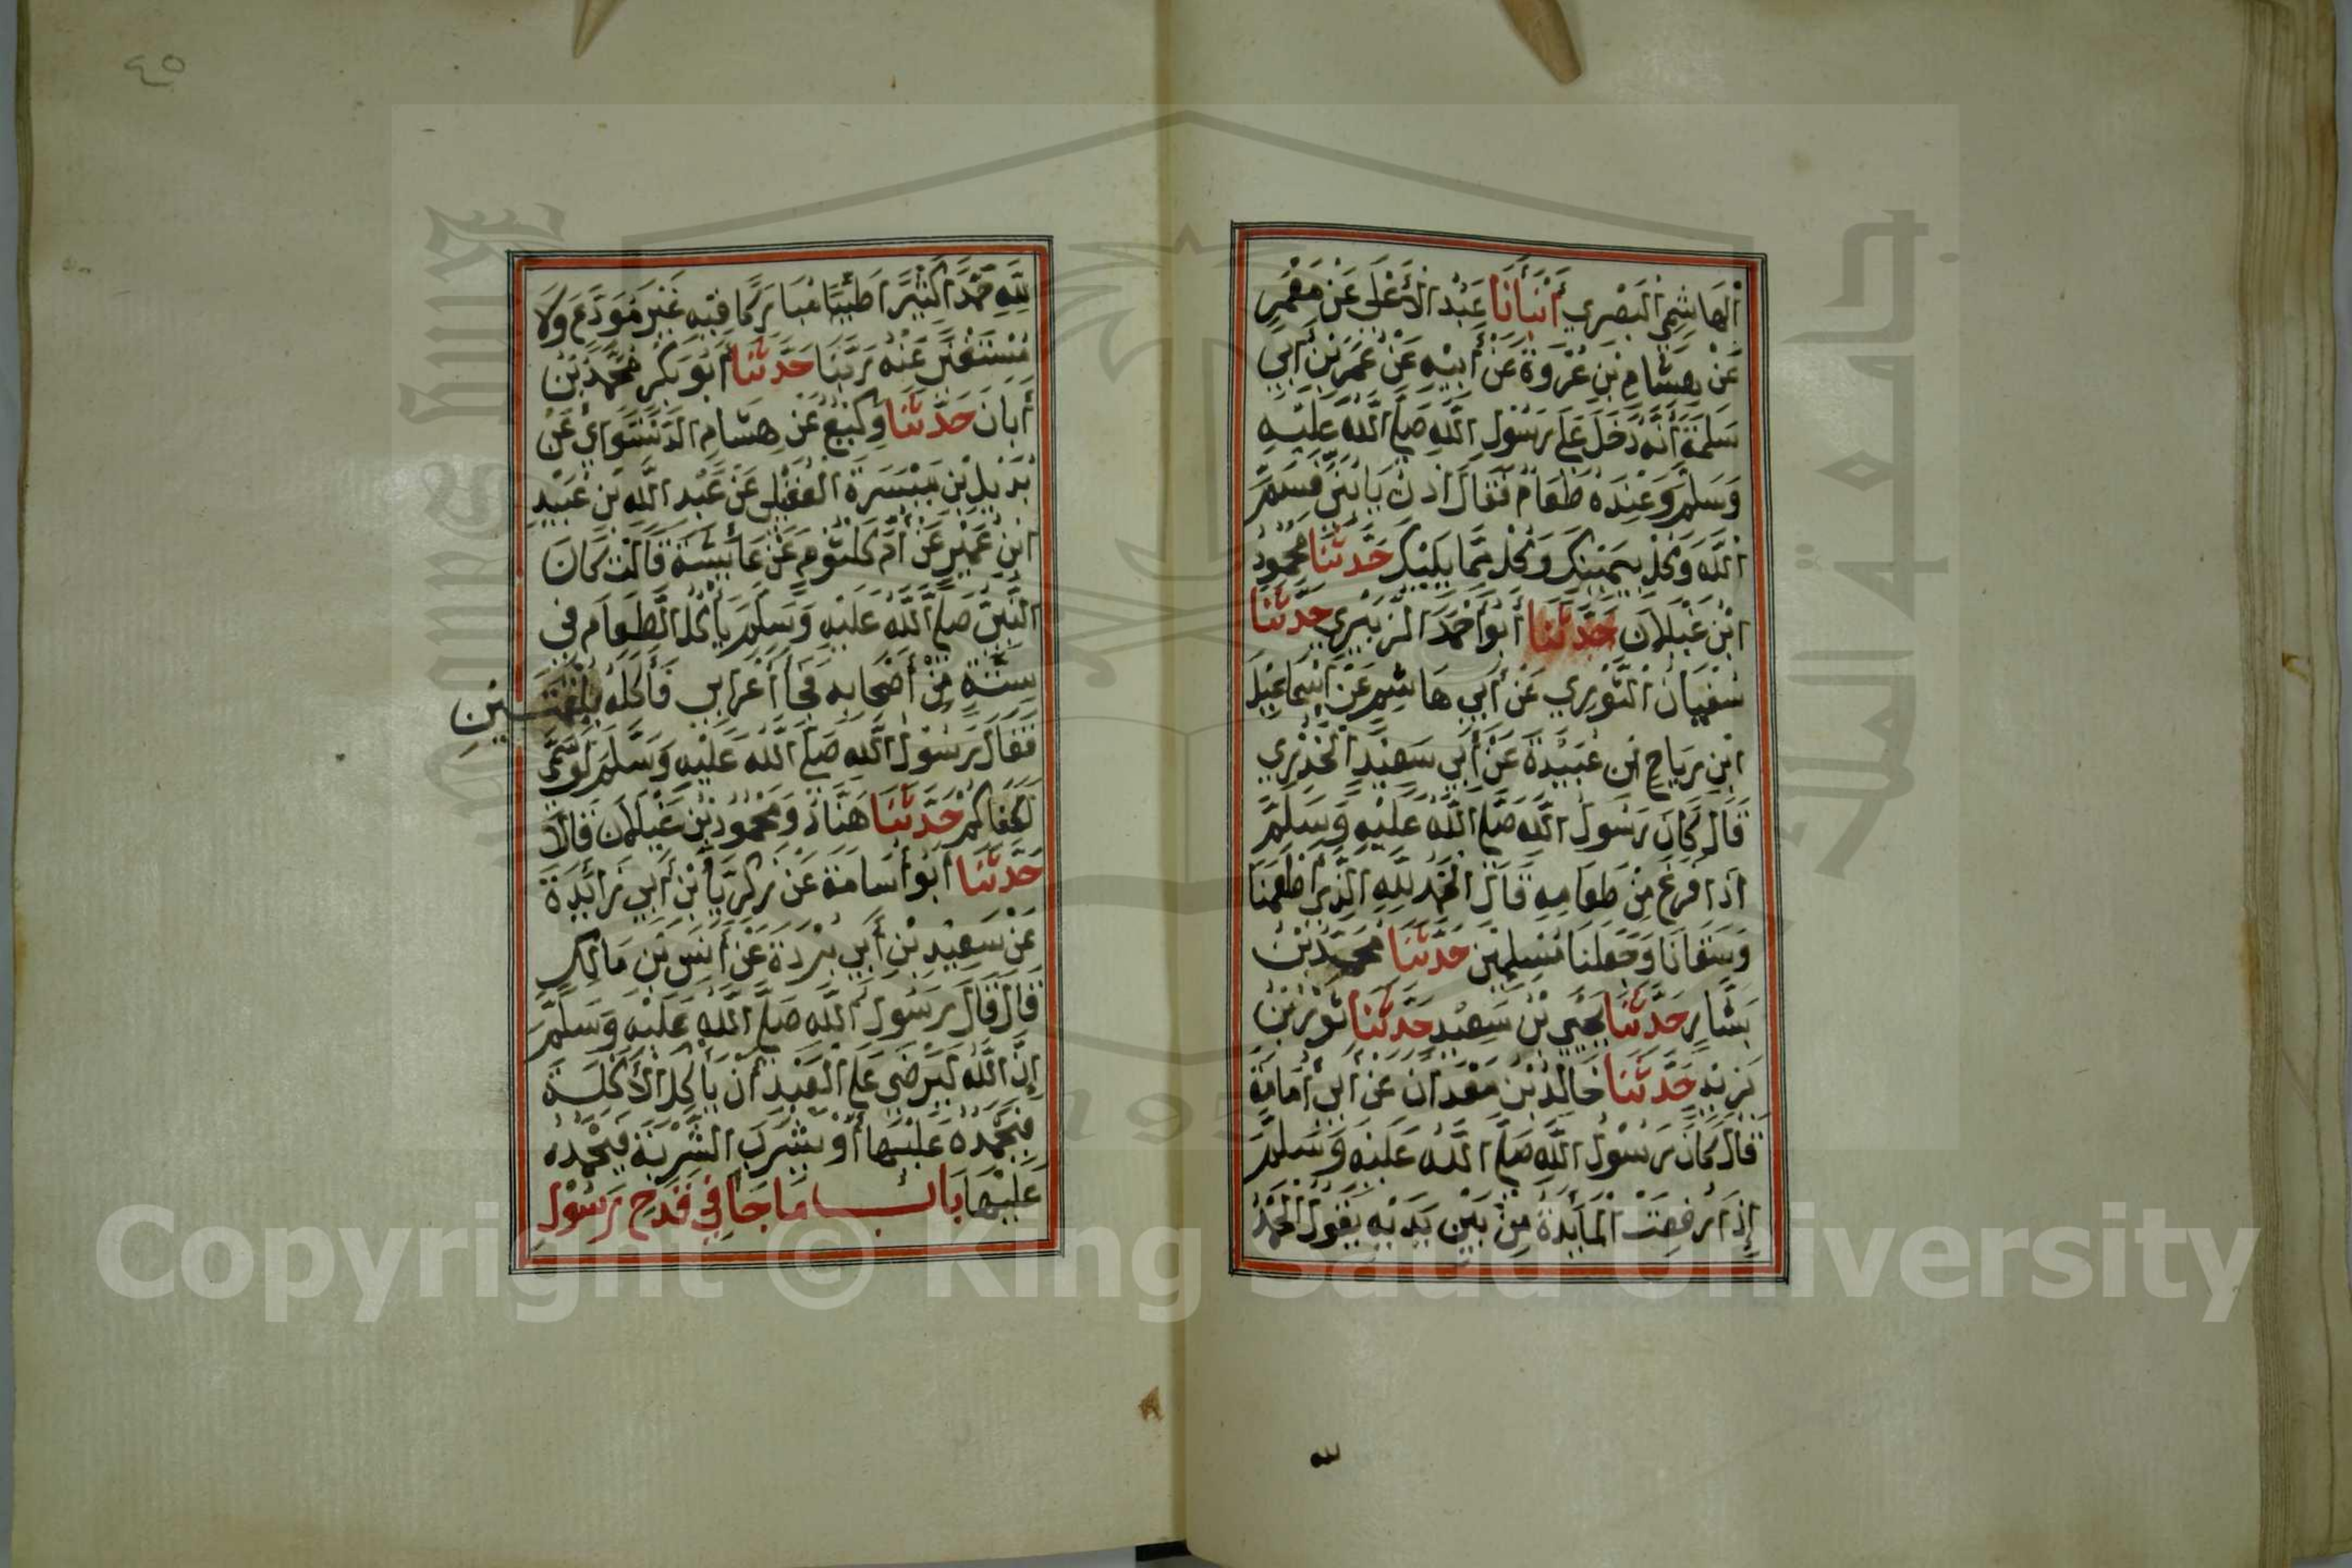 الْهَاشِمِي الْبَصْرِي أَنْبَأَنَا عَبْدُ الْأَعْلَى عَنْ مَعْمَرٍ
عَنْ هِشَامِ بْنِ عُرْوَةَ عَنْ أَبِيْهِ عَنْ عُمَرَ بْنِ أَبِي
سَلَمَةَ أَنَّهُ دَخَلَ عَلَى رَسُوْلِ اللَّهِ صَلَّى اللَّهُ عَلَيْهِ
وَسَلَّمَ وَعِنْدَهُ طَعَامٌ فَقَالَ ادْنُ يَا بُنَيَّ فَسَمِّ
اللَّهَ وَكُلْ بِيَمِيْنِكَ وَكُلْ مِمَّا يَلِيْكَ حَدَّثَنَا مَحْمُوْدُ
ابْنُ غَيْلَانَ حَدَّثَنَا أَبُو أَحْمَدَ الزُّبَيْرِي حَدَّثَنَا
سُفْيَانُ الثَّوْرِي عَنْ أَبِي هَاشِمٍ عَنْ إِسْمَاعِيْلَ
ابْنِ رِيَاحٍ ابْنِ عُبَيْدَةَ عَنْ أَبِي سَعِيْدٍ الْخُدْرِي
قَالَ كَانَ رَسُوْلُ اللَّهِ صَلَّى اللَّهُ عَلَيْهِ وَسَلَّمَ
اذَا فَرَغَ مِنْ طَعَامِهِ قَالَ الْحَمْدُ لِلَّهِ الَّذِي أَطْعَمَنَا
وَسَقَانَا وَجَعَلَنَا مُسْلِمِيْنَ حَدَّثَنَا مُحَمَّدُ بْنُ
بَشَّارٍ حَدَّثَنَا يَحْيَى بْنُ سَعِيْدٍ حَدَّثَنَا ثَوْرُ بْنُ
يَزِيْدَ حَدَّثَنَا خَالِدُ بْنُ مَعْدَانَ عَنْ أَبِي أُمَامَةَ
قَالَ كَانَ رَسُوْلُ اللَّهِ صَلَّى اللَّهُ عَلَيْهِ وَسَلَّمَ
إِذَا رُفِعَتْ الْمَائِدَةُ مِنْ بَيْنِ يَدَيْهِ يَقُوْلُ الْحَمْدُ
لله
٤٥
لِلَّهِ حَمْدًا كَثِيْرًا طَيِّبًا مُبَارَكًا فِيْهِ غَيْرَ مُوَدَّعٍ وَلَا
مُسْتَغْنًى عَنْهُ رَبَّنَا حَدَّثَنَا أَبُو بَكْرٍ مُحَمَّدُ بْنُ
أَبَانَ حَدَّثَنَا وَكِيْعٌ عَنْ هِشَامٍ الدَّسْتَوَائِي عَنْ
بُدَيْلِ بْنِ مَيْسَرَةَ الْعُقَيْلِي عَنْ عَبْدِ اللَّهِ بْنِ عُبَيْدِ
ابْنِ عُمَيْرٍ عَنْ أُمِّ كُلْثُوْمٍ عَنْ عَائِشَةَ قَالَتْ كَانَ
النَّبِيُّ صَلَّى اللَّهُ عَلَيْهِ وَسَلَّمَ يَأْكُلُ الطَّعَامَ فِي
سِتَّةٍ مِنْ أَصْحَابِهِ فَجَا أَعْرَابِي فَأَكَلَهُ بِلُقْمَتَيْنِ
فَقَالَ رَسُوْلُ اللَّهِ صَلَّى اللَّهُ عَلَيْهِ وَسَلَّمَ لَوْ سَمَّى
لَكَفَاكُمْ حَدَّثَنَا هَنَّادٌ وَمَحْمُوْدُ بْنُ غَيْلَانَ قَالَا
حَدَّثَنَا أَبُو أُسَامَةَ عَنْ زَكَرِيَّا بْنِ أَبِي زَائِدَةَ
عَنْ سَعِيْدِ بْنِ أَبِي بُرْدَةَ عَنْ أَنَسِ بْنِ مَالِكٍ
قَالَ قَالَ رَسُوْلُ اللَّهِ صَلَّى اللَّهُ عَلَيْهِ وَسَلَّمَ
إِنَّ اللَّهَ لَيَرْضَى عَلَى الْعَبْدِ أَنْ يَأْكُلَ الْأَكْلَةَ
فَيَحْمَدُهُ عَلَيْهَا أَوْ يَشْرَبَ الشَّرْبَةَ فَيَحْمَدُهُ
عَلَيْهَا بَابُ مَا جَا فِي قَدَحِ رَسُوْلِ
Copyright © King Saud University